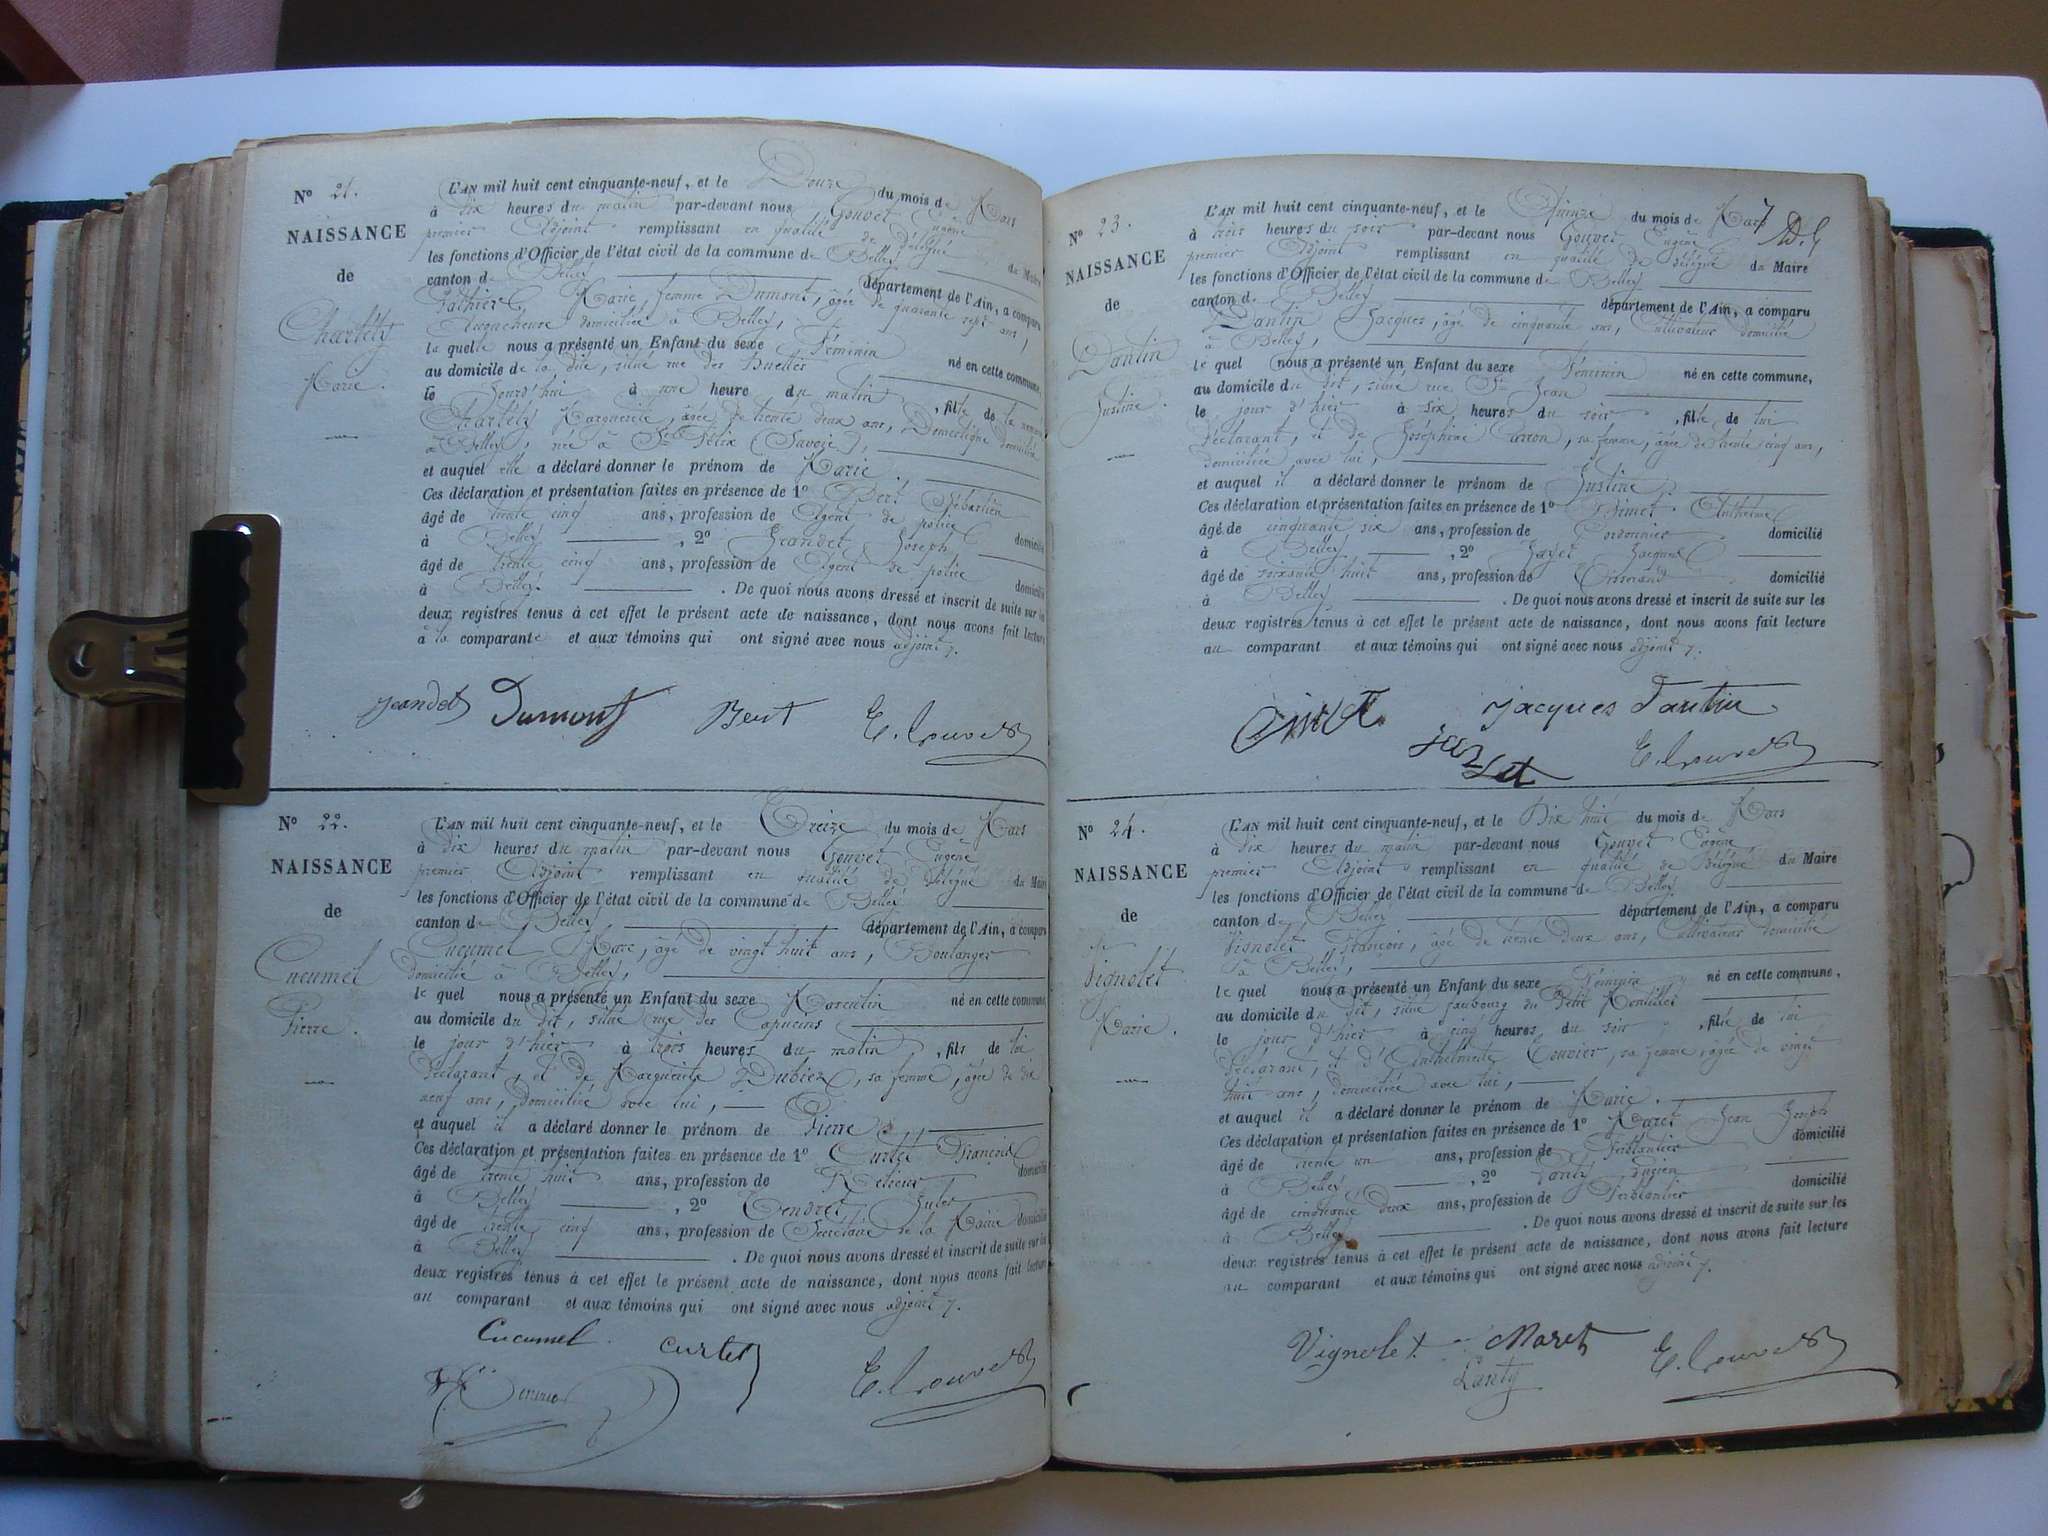 N° 21.
NAISSANCE
de
Charlety
Marie.
L'AN mil huit cent cinquante-neuf, et le Douze du mois de Mars
à dix heures du matin par-devant nous Gouvet Eugène
premier Adjoint remplissant en qualité de Délégué du Maire
les fonctions d'Officier de l'état civil de la commune de Belley
canton de Belley département de l'Ain, a comparu
Marie, femme Dumont, âgée de quarante sept ans,
domiciliée à Belley,
la quelle nous a présenté un Enfant du sexe Féminin né en cette commune,
au domicile de la dite, situé rue des
le jourd'hui à une heure du matin, fille de la nommée
Charlety Marguerite, âgée de trente deux ans, Domestique domiciliée
à Belley, née à St Félix (Savoie),
et auquel elle a déclaré donner le prénom de Marie
Ces déclaration et présentation faites en présence de 1° Bert Sébastien
âgé de trente cinq ans, profession de Agent de police domicilié
à Belley, 2° Jeandet Joseph
âgé de trente cinq ans, profession de Agent de police domicilié
à Belley. De quoi nous avons dressé et inscrit de suite sur les
deux registres tenus à cet effet le présent acte de naissance, dont nous avons fait lecture
à la comparante et aux témoins qui ont signé avec nous adjoint.
Jeandet Dumont Bert E. Gouvet
N° 22.
NAISSANCE
de
Cucumel
Pierre.
L'AN mil huit cent cinquante-neuf, et le Treize du mois de Mars
à dix heures du matin par-devant nous Gouvet Eugène
premier Adjoint remplissant en qualité de Délégué du Maire
les fonctions d'Officier de l'état civil de la commune de Belley
canton de Belley département de l'Ain, a comparu
Cucumel Marc, âgé de vingt huit ans, Boulanger
domicilié à Belley,
le quel nous a présenté un Enfant du sexe Masculin né en cette commune,
au domicile du dit, situé rue des Capucins
le jour d'hier à trois heures du matin, fils de lui
déclarant, et de Marguerite Dubiez, sa femme, âgée de dix
neuf ans, domiciliée avec lui,
et auquel il a déclaré donner le prénom de Pierre
Ces déclaration et présentation faites en présence de 1° Curtet François
âgé de trente huit ans, profession de Relieur domicilié
à Belley, 2° Tendret Jules
âgé de trente cinq ans, profession de Secrétaire de la Mairie domicilié
à Belley. De quoi nous avons dressé et inscrit de suite sur les
deux registres tenus à cet effet le présent acte de naissance, dont nous avons fait lecture
au comparant et aux témoins qui ont signé avec nous adjoint.
Cucumel. Curtet
E. Gouvet
N° 23.
NAISSANCE
de
Dantin
Justine.
L'AN mil huit cent cinquante-neuf, et le Quinze du mois de Mars
à trois heures du soir par-devant nous Gouvet Eugène
premier Adjoint remplissant en qualité de Délégué du Maire
les fonctions d'Officier de l'état civil de la commune de Belley
canton de Belley département de l'Ain, a comparu
Dantin Jacques, âgé de cinquante ans, Cultivateur domicilié
à Belley,
le quel nous a présenté un Enfant du sexe Féminin né en cette commune,
au domicile du dit, situé rue St Jean
le jour d'hier à six heures du soir, fille de lui
déclarant, et de Joséphine Carron, sa femme, âgée de trente cinq ans,
domiciliée avec lui,
et auquel il a déclaré donner le prénom de Justine
Ces déclaration et présentation faites en présence de 1° Anthelme
âgé de cinquante six ans, profession de Cordonnier domicilié
à Belley, 2° Jayet Jacques
âgé de soixante huit ans, profession de domicilié
à Belley. De quoi nous avons dressé et inscrit de suite sur les
deux registres tenus à cet effet le présent acte de naissance, dont nous avons fait lecture
au comparant et aux témoins qui ont signé avec nous adjoint.
Jacques Dantin
E. Gouvet
N° 24.
NAISSANCE
de
Vignolet
Marie.
L'AN mil huit cent cinquante-neuf, et le Dix huit du mois de Mars
à dix heures du matin par-devant nous Gouvet Eugène
premier Adjoint remplissant en qualité de Délégué du Maire
les fonctions d'Officier de l'état civil de la commune de Belley
canton de Belley département de l'Ain, a comparu
Vignolet François, âgé de trente deux ans, Cultivateur domicilié
à Belley,
le quel nous a présenté un Enfant du sexe Féminin né en cette commune,
au domicile du dit, situé faubourg du Petit
le jour d'hier à cinq heures du soir, fille de lui
déclarant, et d'Anthelmette Couvier, sa femme, âgée de vingt
huit ans, domiciliée avec lui,
et auquel il a déclaré donner le prénom de Marie.
Ces déclaration et présentation faites en présence de 1° Maret Jean Joseph
âgé de trente un ans, profession de Ferblantier domicilié
à Belley, 2° Lanty
âgé de cinquante deux ans, profession de Ferblantier domicilié
à Belley. De quoi nous avons dressé et inscrit de suite sur les
deux registres tenus à cet effet le présent acte de naissance, dont nous avons fait lecture
au comparant et aux témoins qui ont signé avec nous adjoint.
Vignolet. Maret
Lanty
E. Gouvet